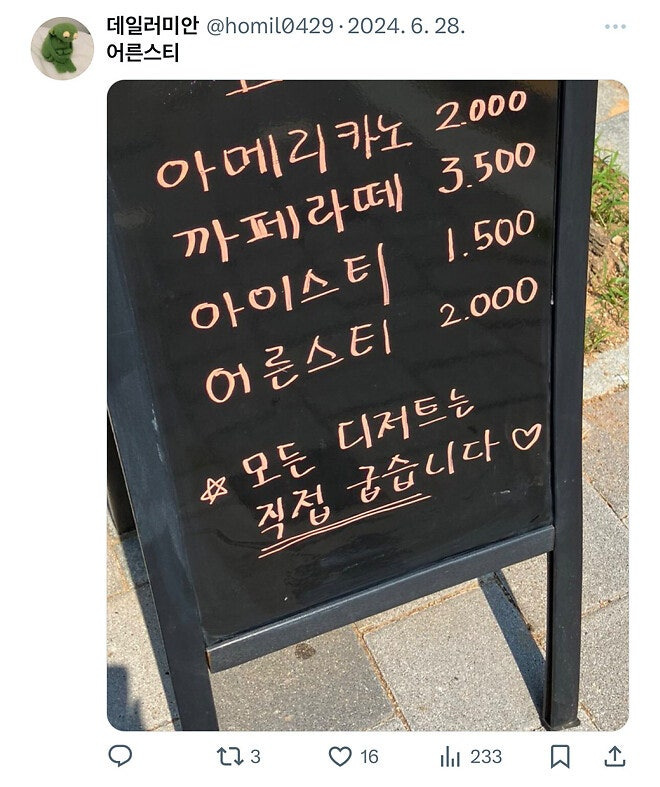 데일러미안 @homil0429 · 2024. 6. 28.
어른스티
아메리카노 2.000
까페라떼 3.500
아이스티 1.500
어른스티 2.000
☆ 모든 디저트는
직접 굽습니다 ♡
3 16 233